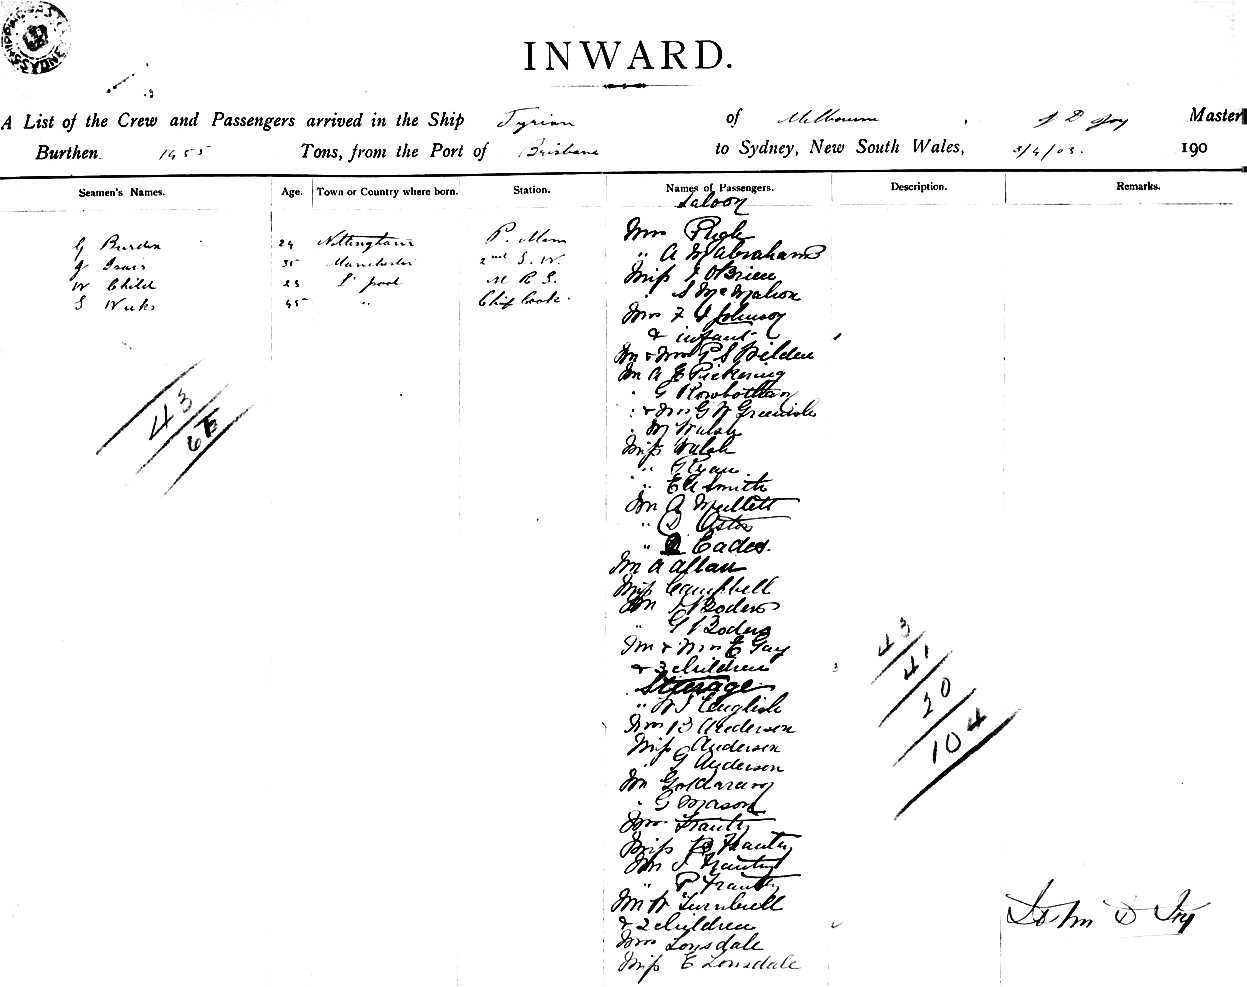 INWARD.
A List of the Crew and Passengers arrived in the Ship Tyrian of Melbourne, J D Joy Master
Burthen 1455 Tons, from the Port of Brisbane to Sydney, New South Wales, 3/4/03. 190
Seamen's Names. Age. Town or Country where born. Station. Names of Passengers. Description. Remarks.
Saloon
G Burden 24 Nottingham P. Man
Mrs
J 35 Manchester 2nd S. W
" A M Abrahams
W Child 23 L'pool M R S.
Miss J O'Brien
S Weeks 45 " Chief Cook
" S McMahon
Mrs F J Johnson
& infant
Mr & Mrs P S Belden
Mr A E Pickering
" G Rowbotham
" & Mrs G W
" M Walsh
Miss Walsh
" G Ryan
" E A Smith
Mr A Mullett
" D Astor
" Eades.
Mr A Allan
Miss Campbell
Mr Boders
" G Boders
Mr & Mrs E Gay
& 3 children
Steerage
" W J English
Mrs B Anderson
Miss Anderson
" G Anderson
Mr
" G Mason
Mrs Frauty
Miss B Frauty
Mr J Frauty
" P Frauty
Mr W Turnbull
& 2 children
Mrs Lonsdale
Miss E Lonsdale
43
43
41
20
104
John D Joy